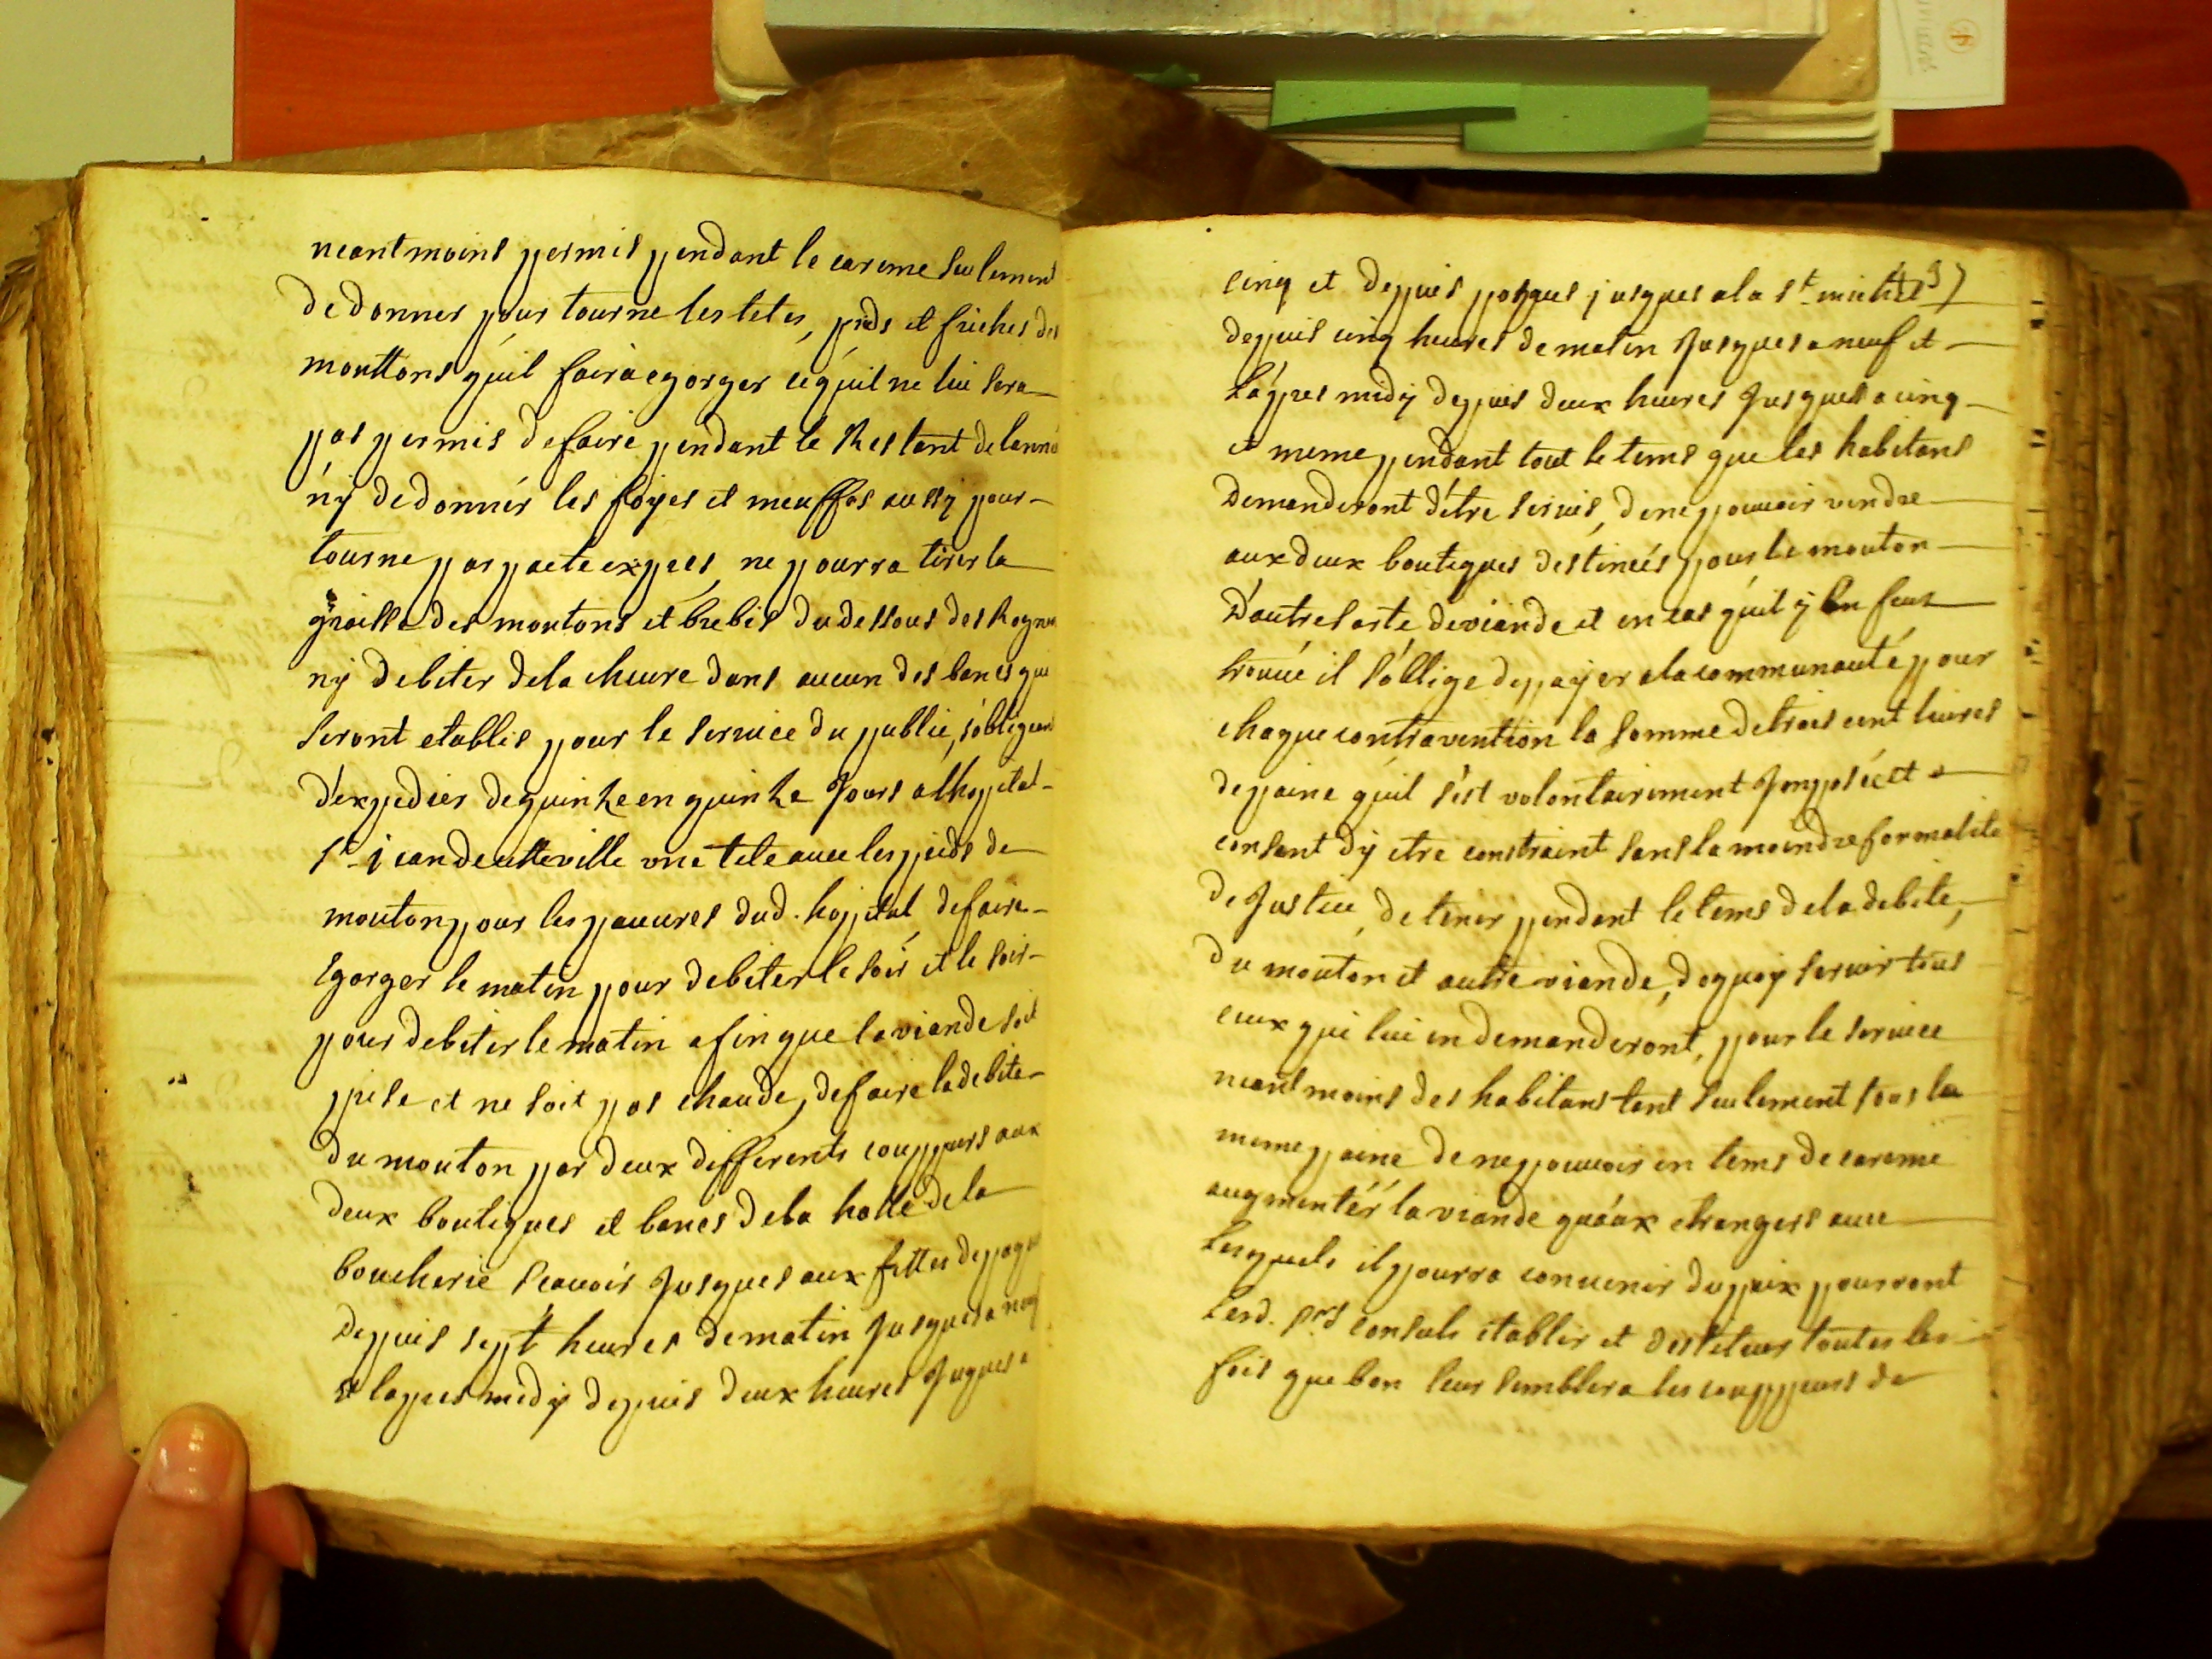 neantmoins permis pendant le careme seulement
de donner pour tourne les tetes, pieds et friches des
mouttons quil faira egorger ce quil ne lui sera
pas permis de faire pendant le Restant de lanné
ny de donnér les foyes et meuffos aussy pour
tourne par pacte expres, ne pourra tirer la
graisse des moutons et brebis du dessous des Rognon
ny debiter dela cheure dans aucun des bancs qui
seront etablis pour le seruice du public, s'obligeant
d'expedier de quinze en quinze Jours a lhopital
St jean de cette ville une tete auec les pieds de
mouton pour les pauures dud. hopital, de faire
Egorger le matin pour debiter le soir et le soir
pour debiter le matin afin que la viande soit
pise et ne soit pas chaude, de faire la debite
du mouton par deux differents couppeurs aux
deux boutiques et bancs dela halle dela
boucherie scauoir Jusques aux fettes de paques
Depuis sept heures de matin Jusques a neuf
et lapres midy depuis deux heures Juques a
437
cinq et depuis pasques jusques a la St michel
depuis cinq heures de matin Jusques a neuf et
L'apres midy depuis deux heures Jusques a cinq
et meme pendant tout le tems que les habitans
Demanderont d'etre seruis, de ne pouuoir vendre
aux deux boutiques destineés pour le mouton
D'autre sorte de viande et en cas quil y en feut
trouué il s'obblige de payer a la communauté pour
chaque contravention la somme de trois cent liures
de paine quil s'est volontairement Jmposéé et a
consant dy etre constraint sans la moindre formalite
de Justice, de tenir pendant le tems de la debite,
du mouton et autre viande, de quoy seruir tous
ceux qui lui en demanderont, pour le seruice
neantmoins des habitans tant seulement sous la
meme paine de ne pouuoir en tems de careme
augmentér la viande qu'aux etrangers auec
Lesquels il pourra conuenir du prix pourront
Lesd. srs consuls etablir et destituer toutes les
fois que bon leur semblera les couppeurs de